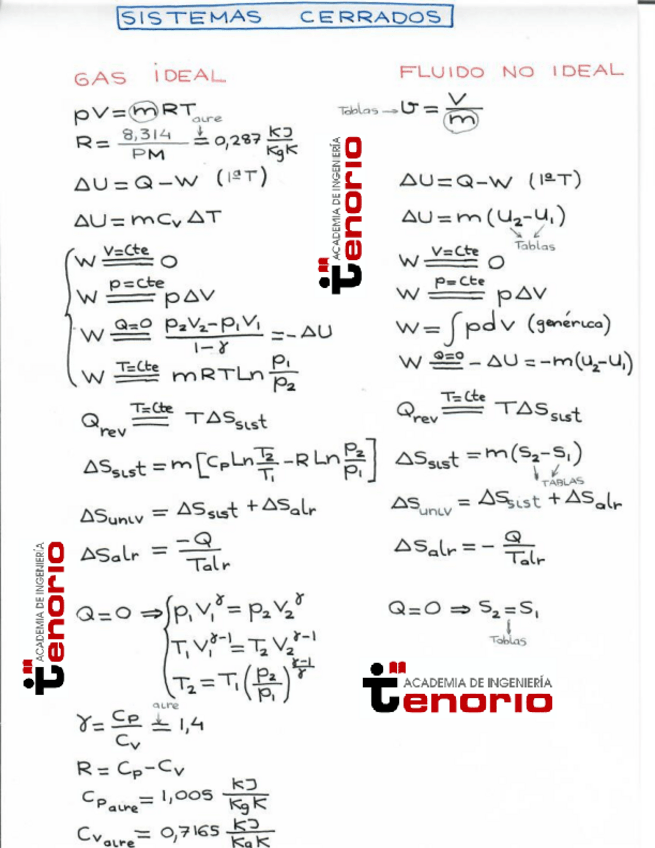 SISTEMAS CERRADOS
GAS IDEAL
pV = m RT
R = 8,314/PM =(aire) 0,287 KJ/KgK
ΔU = Q - W (1ªT)
ΔU = m Cv ΔT
W =(V=Cte) 0
W =(p=Cte) pΔV
W =(Q=0) (P2V2 - P1V1)/(1-γ) = -ΔU
W =(T=Cte) mRTLn P1/P2
Qrev =(T=Cte) TΔSsist
ΔSsist = m[Cp Ln T2/T1 - R Ln P2/P1]
ΔSuniv = ΔSsist + ΔSalr
ΔSalr = -Q/Talr
Q=0 ⇒ { p1V1^γ = p2V2^γ
T1V1^γ-1 = T2V2^γ-1
T2 = T1(P2/P1)^(γ-1)/γ
γ = Cp/Cv =(aire) 1,4
R = Cp - Cv
Cp aire = 1,005 KJ/KgK
Cv aire = 0,7165 KJ/KgK
FLUIDO NO IDEAL
Tablas → v = V/m
ΔU = Q - W (1ªT)
ΔU = m(u2 - u1)
Tablas
W =(V=Cte) 0
W =(p=Cte) pΔV
W = ∫pdv (genérica)
W =(Q=0) -ΔU = -m(u2-u1)
Qrev =(T=Cte) TΔSsist
ΔSsist = m(S2-S1)
TABLAS
ΔSuniv = ΔSsist + ΔSalr
ΔSalr = - Q/Talr
Q=0 ⇒ S2 = S1
Tablas
ACADEMIA DE INGENIERÍA
Tenorio
ACADEMIA DE INGENIERÍA
Tenorio
ACADEMIA DE INGENIERÍA
Tenorio